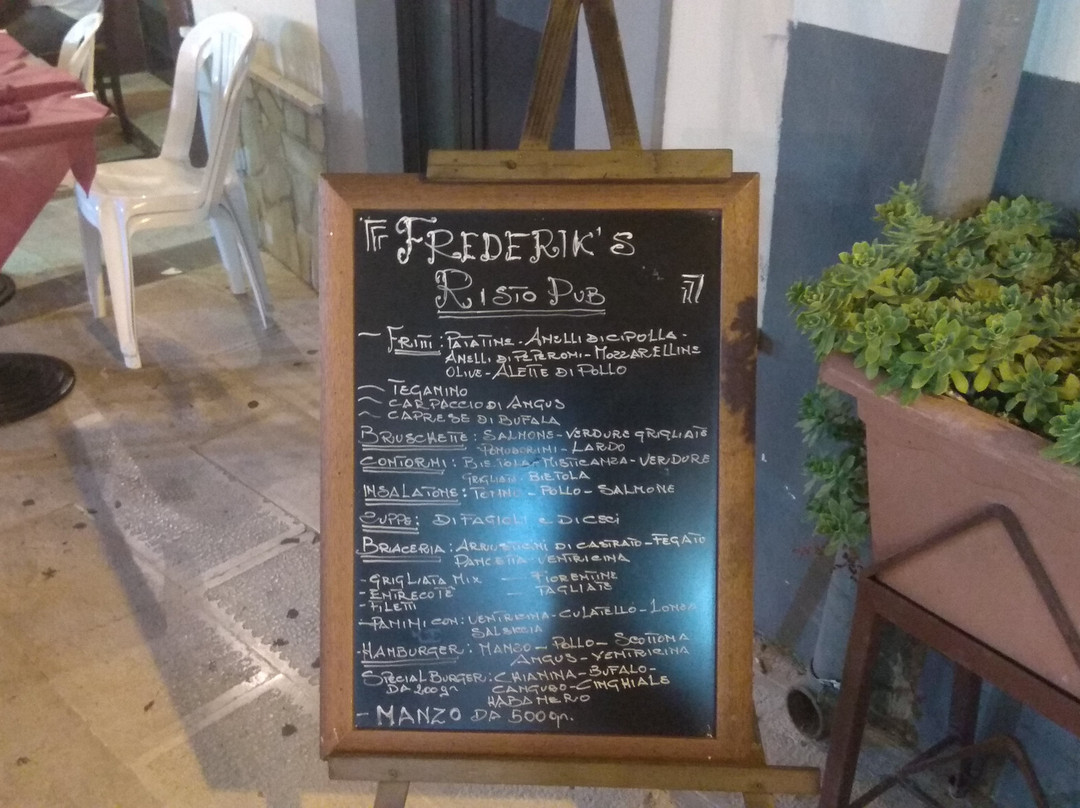 FREDERIK'S
RISTO PUB
FRITTI: PATATINE - ANELLI DI CIPOLLA -
ANELLI DI PEPERONI - MOZZARELLINE
OLIVE - ALETTE DI POLLO
TEGAMINO
CARPACCIO DI ANGUS
CAPRESE DI BUFALA
BRUSCHETTE: SALMONE - VERDURE GRIGLIATE
POMODORINI - LARDO
CONTORNI: BIETOLA - MISTICANZA - VERDURE
GRIGLIATE BIETOLA
INSALATONE: TONNO - POLLO - SALMONE
ZUPPE: DI FAGIOLI E DI CECI
BRACERIA: ARROSTICINI DI CASTRATO - FEGATO
PANCETTA VENTRICINA
- GRIGLIATA MIX — FIORENTINE
- ENTRECOTE — TAGLIATE
- FILETTI
- PANINI CON: VENTRICINA - CULATELLO - LONZA
SALSICCIA
- HAMBURGER: MANZO - POLLO - SCOTTONA
ANGUS - VENTRICINA
SPECIAL BURGER: CHIANINA - BUFALO -
DA 200gr CANGURO - CINGHIALE
HABANERO
- MANZO DA 500gr.